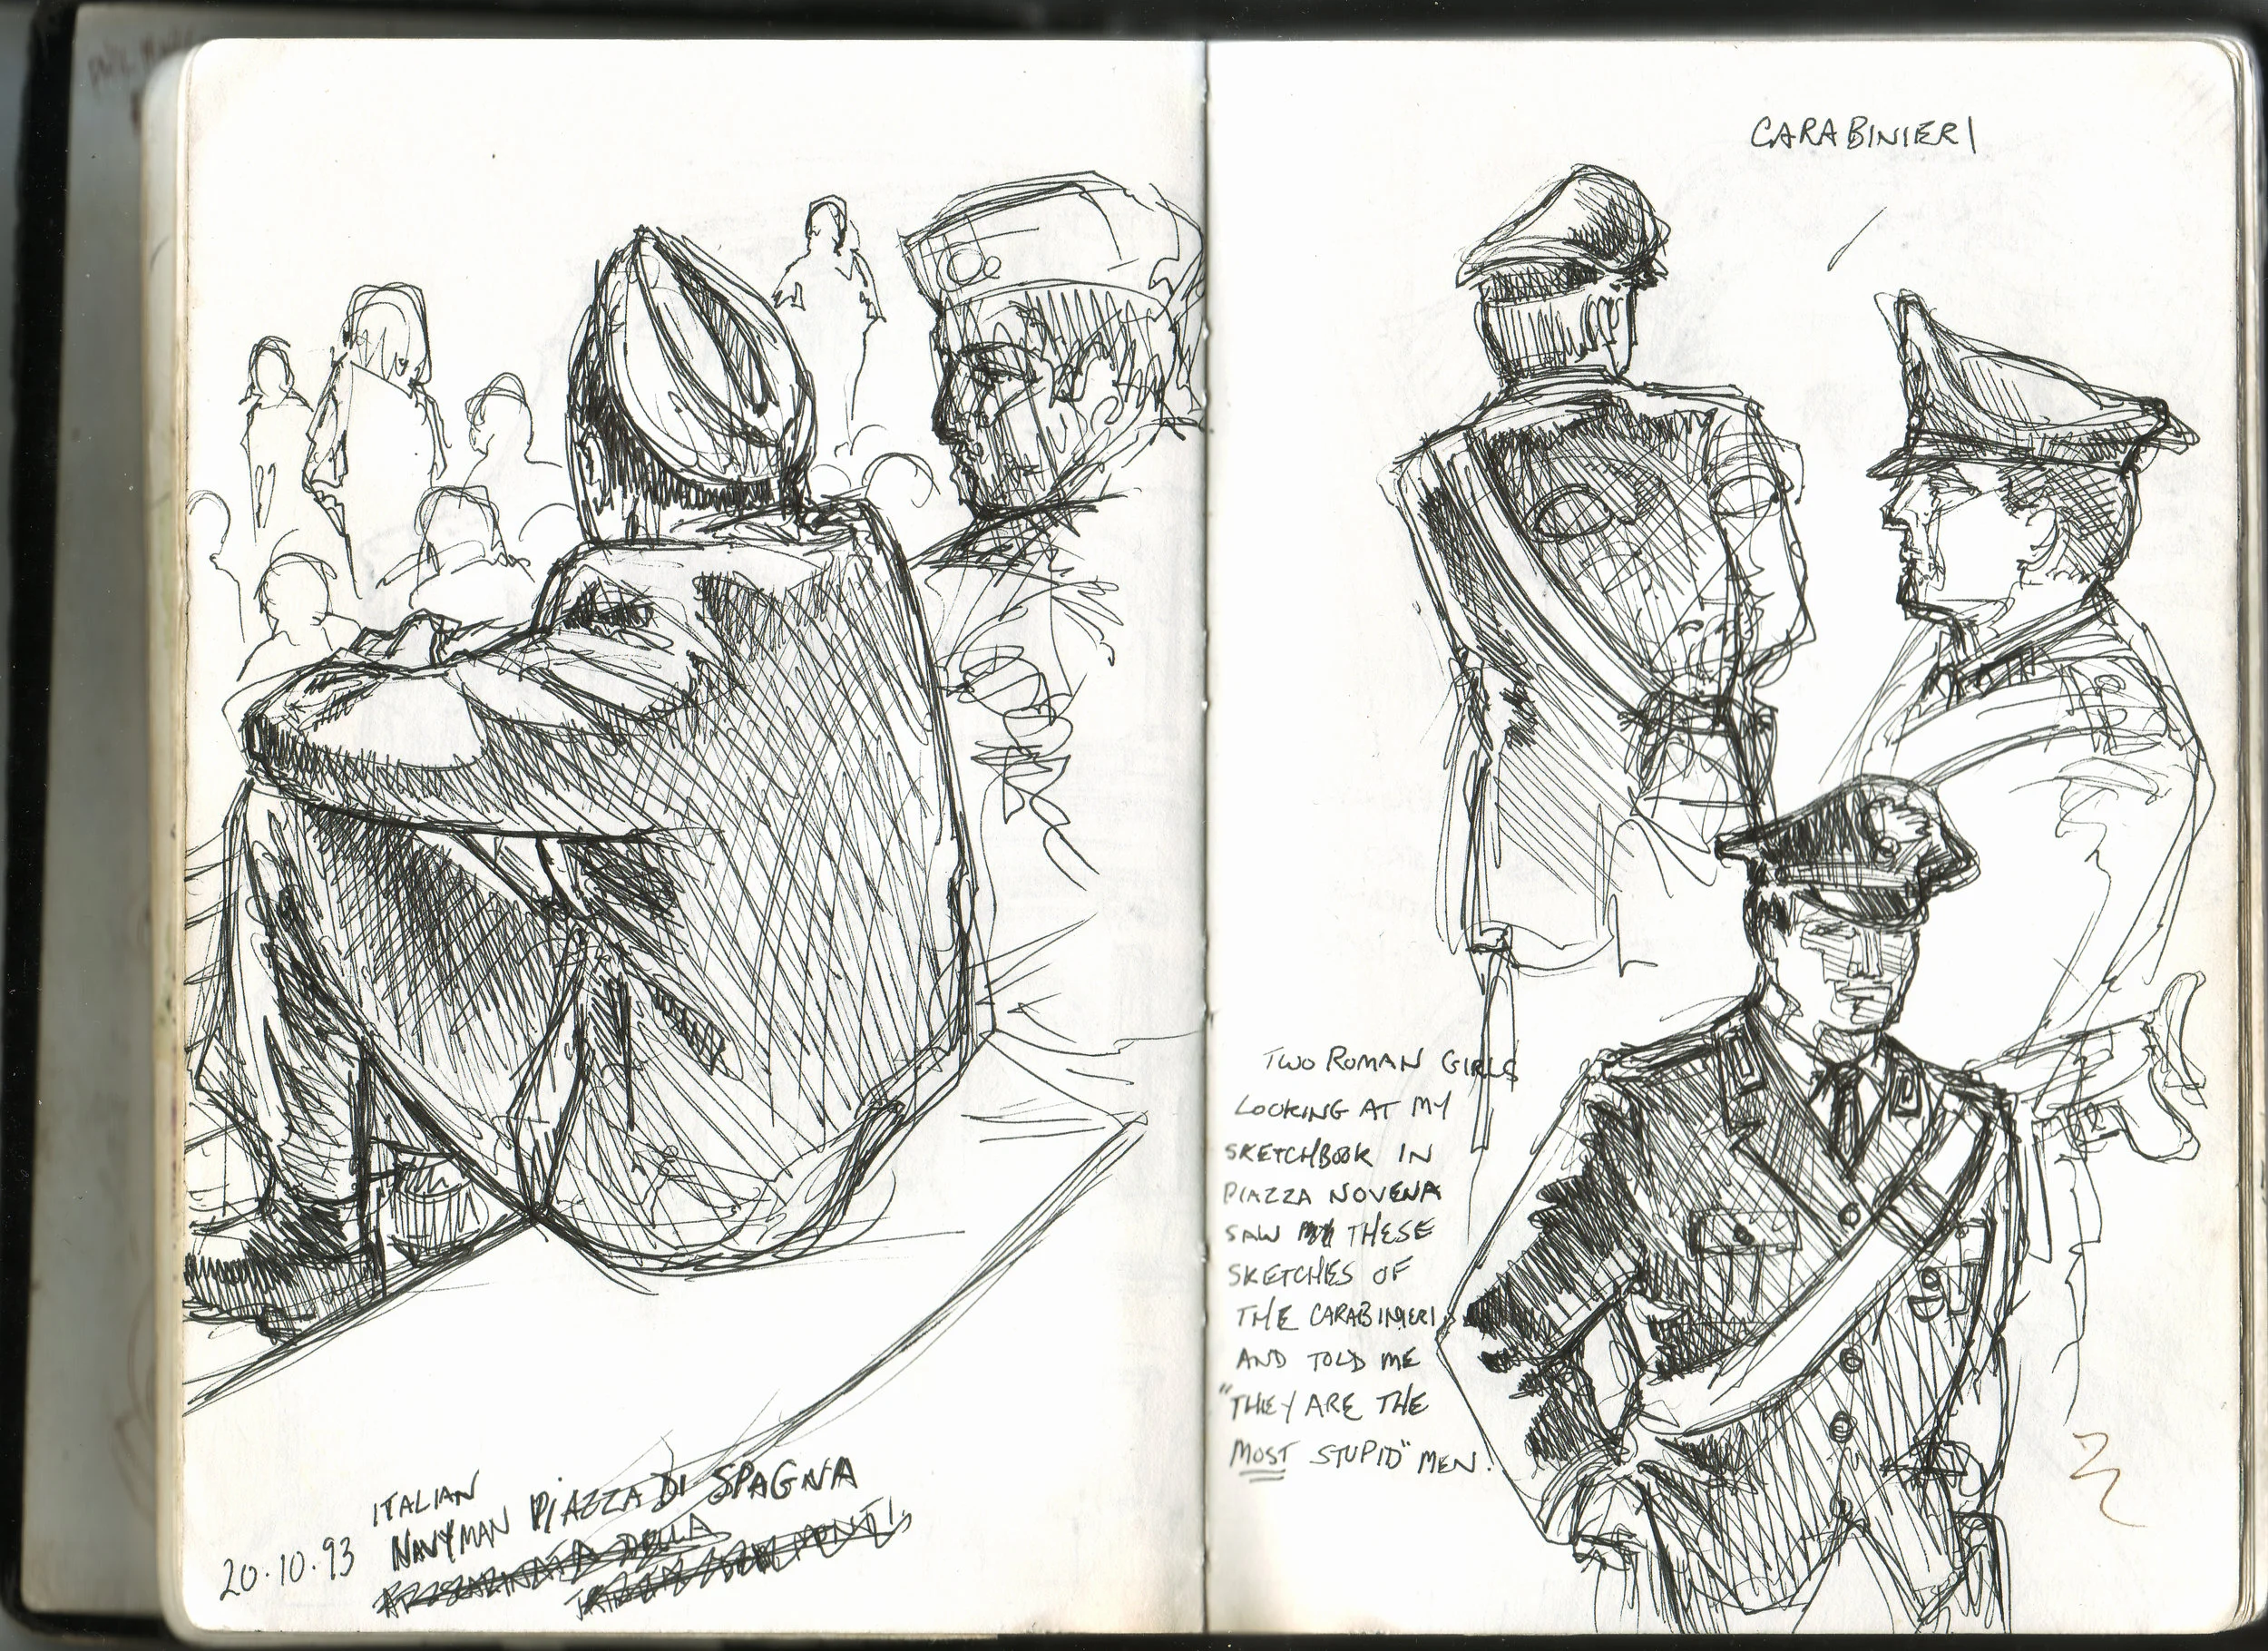 ITALIAN
NAVYMAN PIAZZA DI SPAGNA
20.10.93
DELLA
CARABINIERI
TWO ROMAN GIRLS
LOOKING AT MY
SKETCHBOOK IN
PIAZZA NOVENA
SAW THESE
SKETCHES OF
THE CARABINIERI,
AND TOLD ME
"THEY ARE THE
MOST STUPID" MEN.